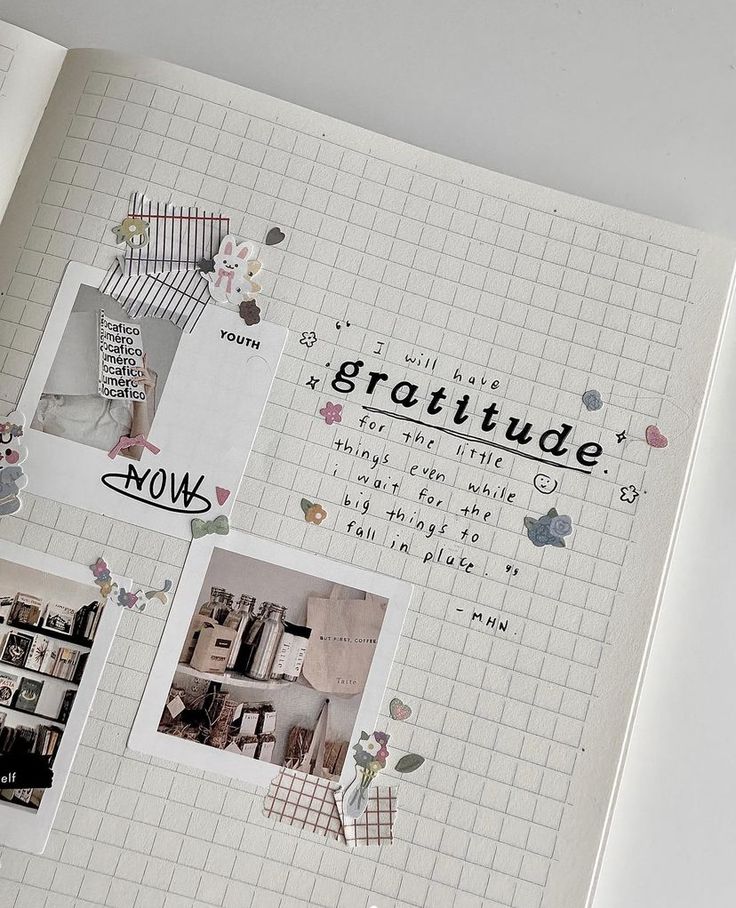 YOUTH
ocafico
uméro
ocafico
uméro
ocafico
uméro
locafico
NOW
“ I will have
gratitude.
for the little
things even while
i wait for the
big things to
fall in place. ”
- MHN.
BUT FIRST, COFFEE
Taite
Taite
Taite
elf